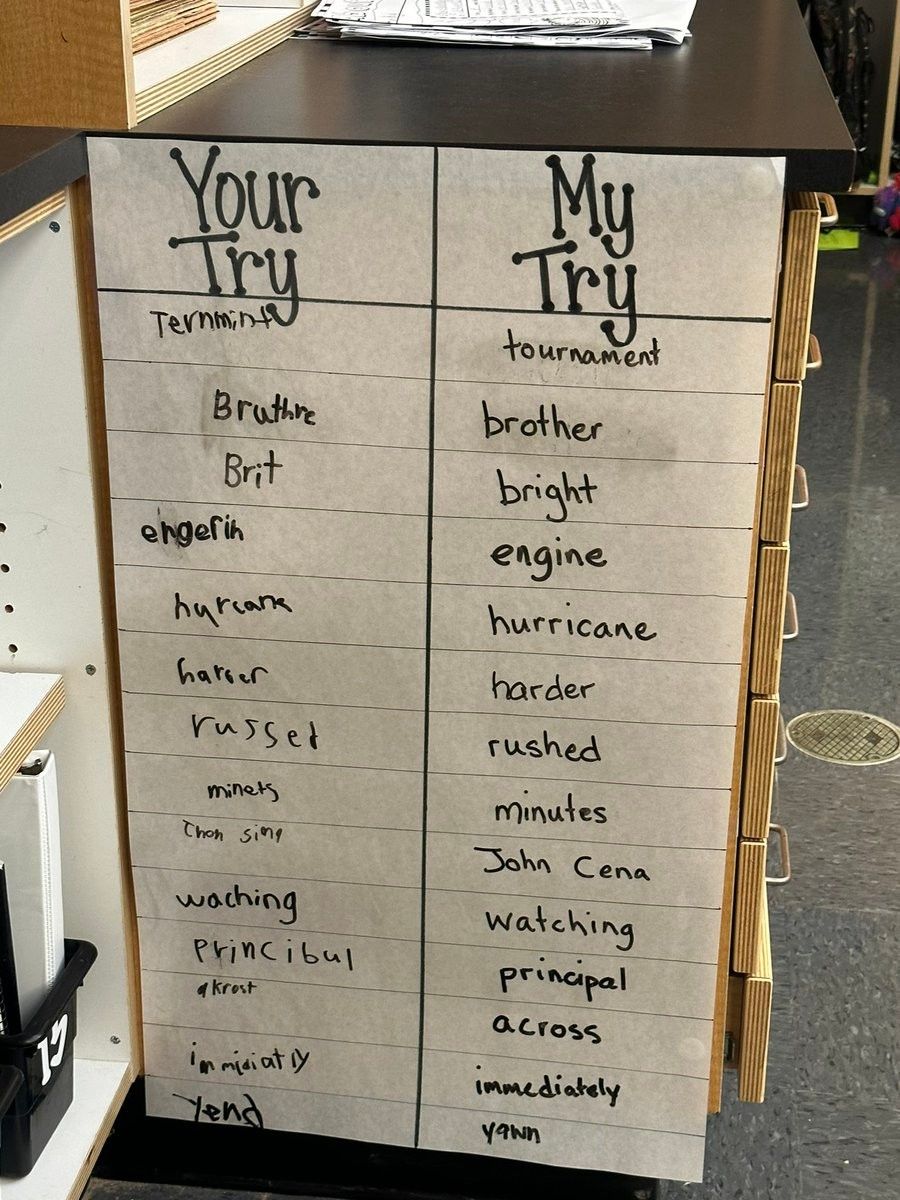 Your Try
My Try
Ternmint
tournament
Bruthre
brother
Brit
bright
engerin
engine
hurricane
harder
russet
rushed
minets
minutes
John Cena
waching
watching
Principul
principal
akrost
across
immidiatly
immediately
Yend
yawn
13